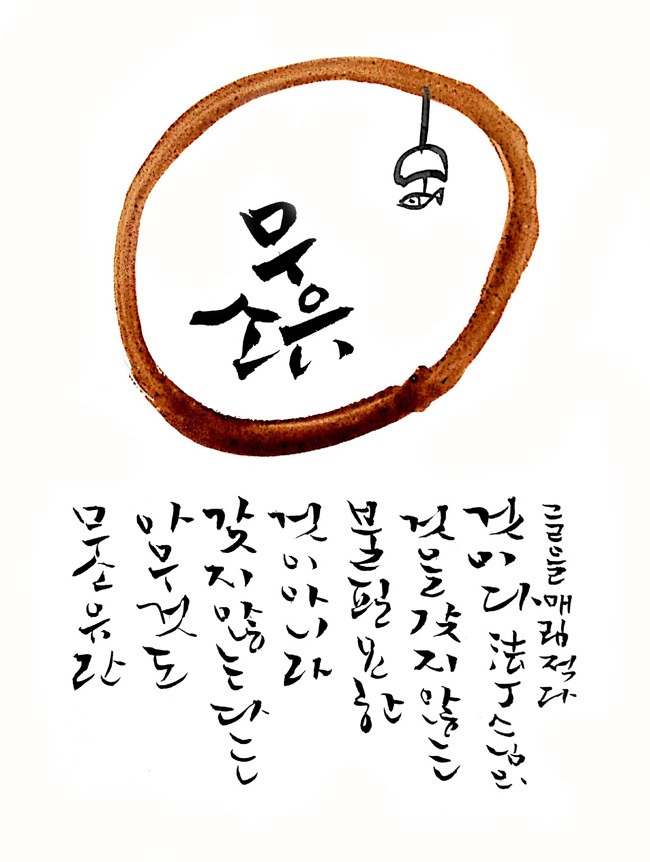 무
소유
무소유란
아무것도
갖지않는다는
것이아니라
불필요한
것을갖지않는
것이다. 法丁스님의
글을 매림적다